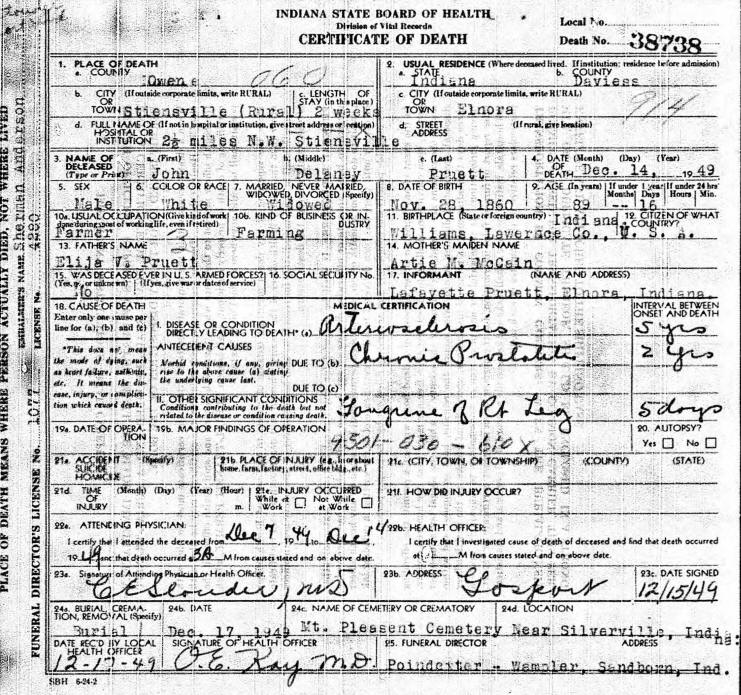 INDIANA STATE BOARD OF HEALTH
Division of Vital Records
CERTIFICATE OF DEATH
Local No.
Death No. 38738
1. PLACE OF DEATH
a. COUNTY
Owen
060
2. USUAL RESIDENCE (Where deceased lived. If institution: residence before admission)
a. STATE
Indiana
b. COUNTY
Daviess
b. CITY (If outside corporate limits, write RURAL)
OR
TOWN Stiensville (Rural)
c. LENGTH OF
STAY (in this place)
2 weeks
c. CITY (If outside corporate limits, write RURAL)
OR
TOWN Elnora
914
d. FULL NAME OF (If not in hospital or institution, give street address or location)
HOSPITAL OR
INSTITUTION 2½ miles N.W. Stiensville
d. STREET
ADDRESS
(If rural, give location)
3. NAME OF
DECEASED
(Type or Print)
a. (First)
John
b. (Middle)
Delaney
c. (Last)
Pruett
4. DATE (Month) (Day) (Year)
OF
DEATH Dec. 14, 1949
5. SEX
Male
6. COLOR OR RACE
White
7. MARRIED, NEVER MARRIED,
WIDOWED, DIVORCED (Specify)
Widowed
8. DATE OF BIRTH
Nov. 28, 1860
9. AGE (In years)
89
If under 1 year
Months Days
-- 16
If under 24 hrs
Hours Min.
10a. USUAL OCCUPATION (Give kind of work
done during most of working life, even if retired)
Farmer
10b. KIND OF BUSINESS OR IN-
DUSTRY
Farming
11. BIRTHPLACE (State or foreign country) Indiana
Williams, Lawerace Co.,
12. CITIZEN OF WHAT
COUNTRY?
U. S. A.
13. FATHER'S NAME
Elija V. Pruett
14. MOTHER'S MAIDEN NAME
Artie M. McCain
15. WAS DECEASED EVER IN U. S. ARMED FORCES?
(Yes, no, or unknown) (If yes, give war or dates of service)
No
16. SOCIAL SECURITY No.
17. INFORMANT (NAME AND ADDRESS)
Lafayette Pruett, Elnora, Indiana.
18. CAUSE OF DEATH
Enter only one cause per
line for (a), (b), and (c)
*This does not mean
the mode of dying, such
as heart failure, asthenia,
etc. It means the dis-
ease, injury, or complica-
tion which caused death.
MEDICAL CERTIFICATION
INTERVAL BETWEEN
ONSET AND DEATH
I. DISEASE OR CONDITION
DIRECTLY LEADING TO DEATH* (a) Arterosclerosis
5 yrs
ANTECEDENT CAUSES
Morbid conditions, if any, giving
rise to the above cause (a) stating
the underlying cause last.
DUE TO (b) Chronic Prostatitis
2 yrs
DUE TO (c)
II. OTHER SIGNIFICANT CONDITIONS
Conditions contributing to the death but not
related to the disease or condition causing death.
Gangrene of Rt Leg
5 days
19a. DATE OF OPERA-
TION
19b. MAJOR FINDINGS OF OPERATION
4501-030-610X
20. AUTOPSY?
Yes No
21a. ACCIDENT (Specify)
SUICIDE
HOMICIDE
21b. PLACE OF INJURY (e.g., in or about
home, farm, factory, street, office bldg., etc.)
21c. (CITY, TOWN, OR TOWNSHIP) (COUNTY) (STATE)
21d. TIME (Month) (Day) (Year) (Hour)
OF
INJURY m.
21e. INJURY OCCURRED
While at Not While
Work at Work
21f. HOW DID INJURY OCCUR?
22a. ATTENDING PHYSICIAN:
I certify that I attended the deceased from Dec 7 1949 to Dec 14
1949 and that death occurred 3A M from causes stated and on above date.
22b. HEALTH OFFICER:
I certify that I investigated cause of death of deceased and find that death occurred
at M from causes stated and on above date.
23a. Signature of Attending Physician or Health Officer.
C E Slouder, MD
23b. ADDRESS
Gosport
23c. DATE SIGNED
12/15/49
24a. BURIAL, CREMA-
TION, REMOVAL (Specify)
Burial
24b. DATE
Dec. 17, 1949
24c. NAME OF CEMETERY OR CREMATORY
Mt. Pleasent Cemetery
24d. LOCATION
Near Silverville, Indiana.
DATE REC'D BY LOCAL
HEALTH OFFICER
12-17-49
SIGNATURE OF HEALTH OFFICER
O. E. Kay M.D.
25. FUNERAL DIRECTOR ADDRESS
Poindexter - Wampler, Sandborn, Ind.
SBH 6-24-2
PLACE OF DEATH MEANS WHERE PERSON ACTUALLY DIED, NOT WHERE LIVED
EMBALMER'S NAME Sherman Anderson
LICENSE No.
FUNERAL DIRECTOR'S LICENSE No. 1077